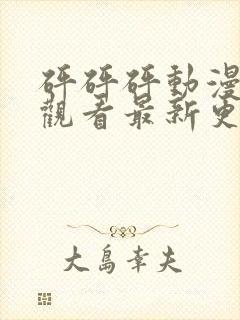 砰砰砰動漫
觀看最新更
大島幸夫